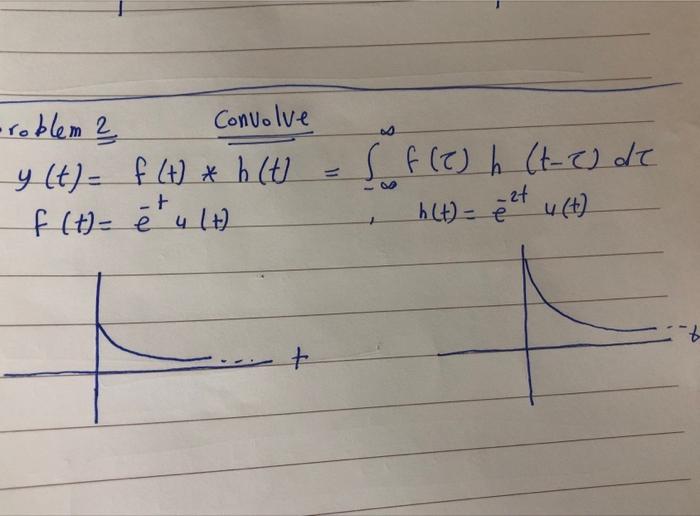 roblem 2 Convolve
y(t) = f(t) * h(t) = ∫_{-∞}^{∞} f(τ) h (t-τ) dτ
f(t) = e^{-t} u(t) , h(t) = e^{-2t} u(t)
... t --t